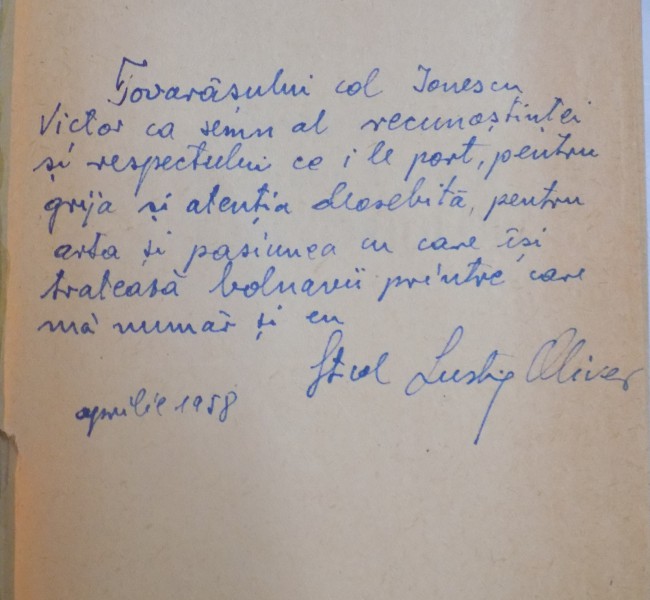 Tovarăsului col Ionescu
Victor ca semn al recunoștinței
și respectului ce i le port, pentru
grija și atenția deosebită, pentru
arta și pasiunea cu care își
tratează bolnavii printre care
mă număr și eu
Lustig Oliver
aprilie 1958